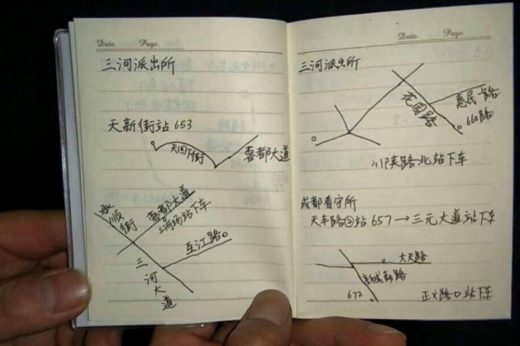 Date. Page.
三河派出所
天新街站 653
天回下街
蓉都大道
永顺街
蓉都大道
三河场站下车
互江路
三河大道
Date. Page.
三河派出所
花园路
惠民一路
660路
川陕路北站下车
成都看守所
天丰路②站 657→三元大道站下车
大天路
新成彭路
672
正义路口站下车